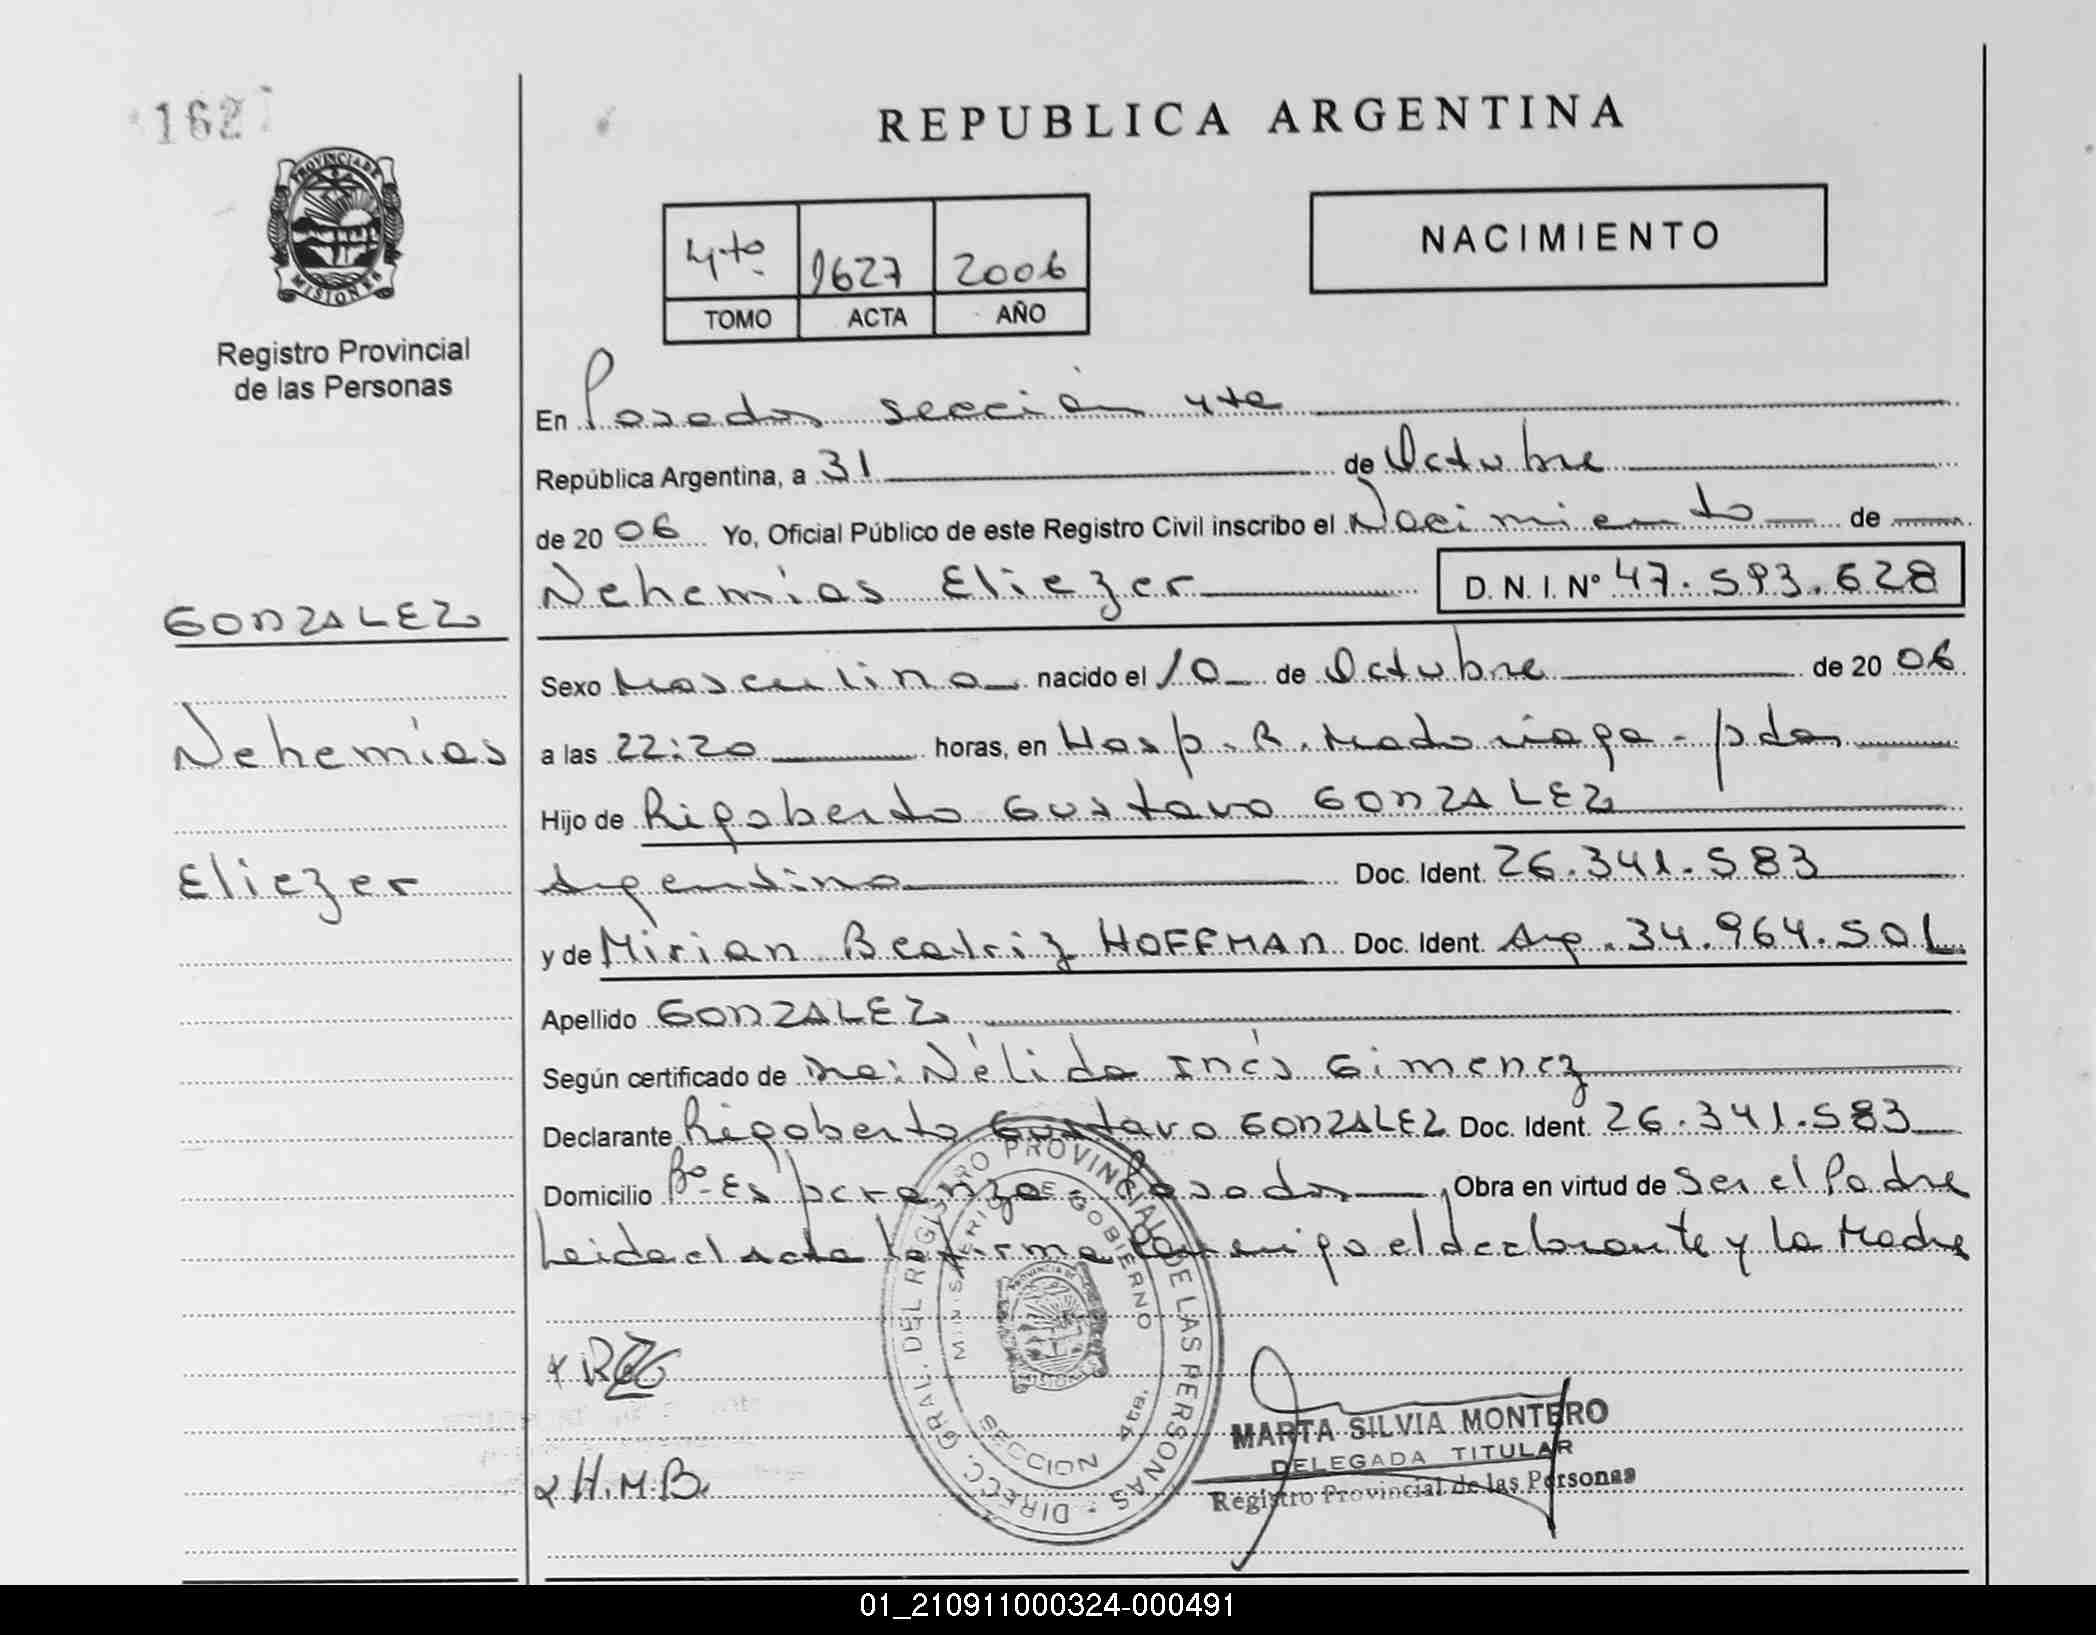 1627
REPUBLICA ARGENTINA
PROVINCIA DE
MISIONES
Registro Provincial
de las Personas
4to. 1627 2006
TOMO ACTA AÑO
NACIMIENTO
En Posadas sección 4ta
República Argentina, a 31 de Octubre
de 20 06 Yo, Oficial Público de este Registro Civil inscribo el Nacimiento de
Nehemías Eliezer D. N. I. Nº 47.593.628
GONZALEZ
Nehemías
Eliezer
Sexo Masculino nacido el 10 de Octubre de 20 06
a las 22:20 horas, en Hosp. R. Madariaga - pdas
Hijo de Rigoberto Gustavo GONZALEZ
Argentino Doc. Ident. 26.341.583
y de Mirian Beatriz HOFFMAN Doc. Ident. Arg. 34.964.501
Apellido GONZALEZ
Según certificado de Dra: Nélida Inés Gimenez
Declarante Rigoberto Gustavo GONZALEZ Doc. Ident. 26.341.583
Domicilio Bº Esperanza - Posadas, Obra en virtud de Ser el Padre
Leida el acta la firma conmigo el declarante y la Madre
DIRECC. GRAL. DEL REGISTRO PROVINCIAL DE LAS PERSONAS
MINISTERIO DE GOBIERNO
PROVINCIA DE
MISIONES
SECCION 4ta.
H.M.B.
MARTA SILVIA MONTERO
DELEGADA TITULAR
Registro Provincial de las Personas
01_210911000324-000491